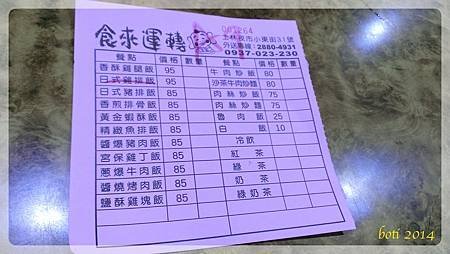 食來運轉
001264
士林夜市小東街31號
外送專線：2880-4931
0937-023-230
餐點 價格 數量 餐點 價格 數量
香酥雞腿飯 95 牛肉炒飯 80
日式雞排飯 95 沙茶牛肉炒麵 80
日式豬排飯 85 肉絲炒飯 75
香煎排骨飯 85 肉絲炒麵 75
黃金蝦酥飯 85 魯肉飯 25
精緻魚排飯 85 白飯 10
醬爆豬肉飯 85 冷飲
宮保雞丁飯 85 紅茶
蔥爆牛肉飯 85 綠茶
醬燒烤肉飯 85 奶茶
鹽酥雞塊飯 85 綠奶茶
boti 2014